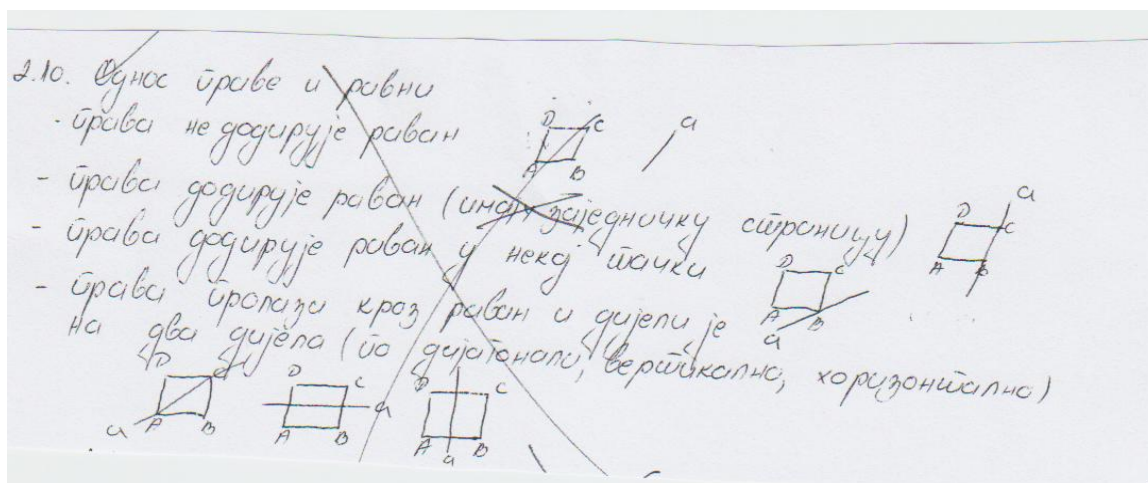 2.10. Однос праве и равни
- права не додирује раван
D C
A B
a
- права додирује раван (има заједничку страницу)
a
D C
A B
- права додирује раван у некој тачки
D C
A B
a
- права пролази кроз раван и дијели је
на два дијела (по дијагонали, вертикално, хоризонтално)
D C
a A B
D C
a
A B
D C
A B
a